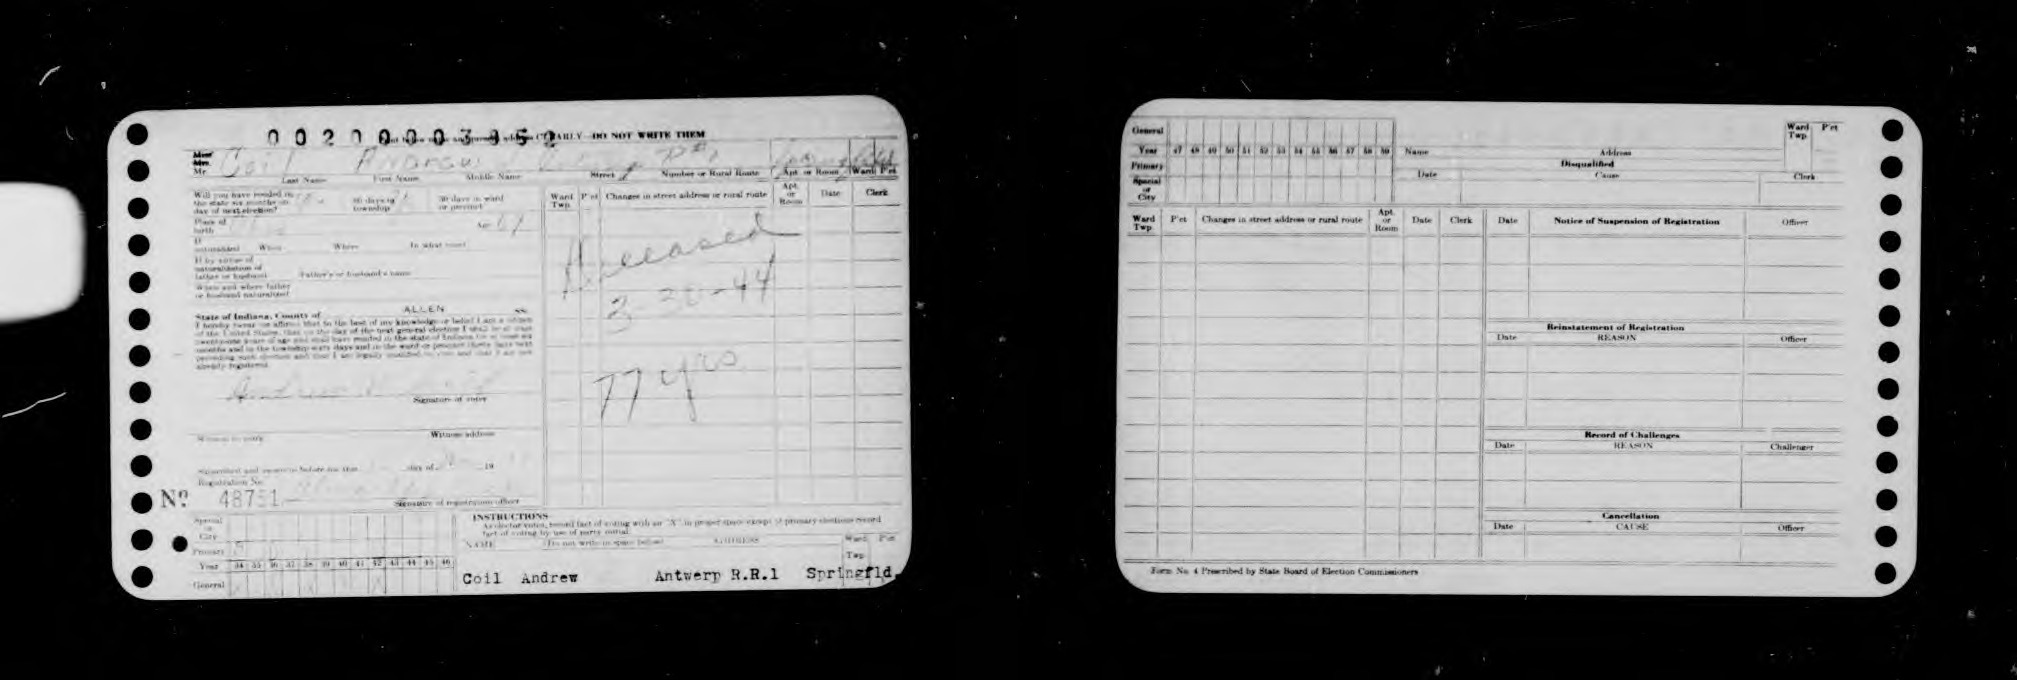 00200003952
CLEARLY—DO NOT WRITE THEM
Miss
Mrs.
Mr. Coil Andrew Antwerp R#1 Springfield
Last Name First Name Middle Name Street Number or Rural Route Apt. or Room Ward P'ct
Will you have resided in
the state six months on
day of next election?
60 days in
township
30 days in ward
or precinct
Place of
birth
Age
If
naturalized When Where In what court
If by virtue of
naturalization of
father or husband Father's or husband's name
When and where father
or husband naturalized
State of Indiana, County of ALLEN ss:
I hereby swear or affirm that to the best of my knowledge or belief I am a citizen
of the United States, that on the day of the next general election I shall be at least
twenty-one years of age and shall have resided in the state of Indiana for at least six
months and in the township sixty days and in the ward or precinct thirty days next
preceding such election and that I am legally qualified to vote and that I am not
already registered.
Andrew Coil
Signature of voter
Witness to mark Witness address
Subscribed and sworn to before me this day of 19
Registration No.
No. 48751
Signature of registration officer
Ward
Twp. P'ct Changes in street address or rural route Apt.
or
Room Date Clerk
Deceased
3-20-44
77 yrs
Special
or
City
Primary
Year 34 35 36 37 38 39 40 41 42 43 44 45 46
General X X X X
INSTRUCTIONS
As elector votes, record fact of voting with an "X" in proper space except at primary elections record
fact of voting by use of party initial.
NAME (Do not write in space below) ADDRESS Ward P'ct
Twp.
Coil Andrew Antwerp R.R.1 Springfld.
General
Year 47 48 49 50 51 52 53 54 55 56 57 58 59
Primary
Special
or
City
Name Address
Ward
Twp. P'ct
Disqualified
Date Cause Clerk
Ward
Twp P'ct Changes in street address or rural route Apt.
or
Room Date Clerk
Date Notice of Suspension of Registration Officer
Reinstatement of Registration
Date REASON Officer
Record of Challenges
Date REASON Challenger
Cancellation
Date CAUSE Officer
Form No. 4 Prescribed by State Board of Election Commissioners